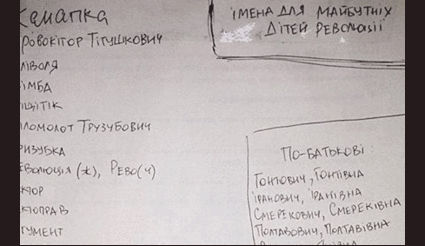 Хемапка
ровокітор Тітушкович
ліволя
імба
щітік
ломолот Трузубович
ризубка
еволюція (ж), Рево(ч)
ктор
ктоправ
гумент
імена для майбутніх
дітей революції
По-батькові:
Гонтович, Гонтівна
Іранович, Іранівна
Смерекович, Смереківна
Полтавович, Полтавівна